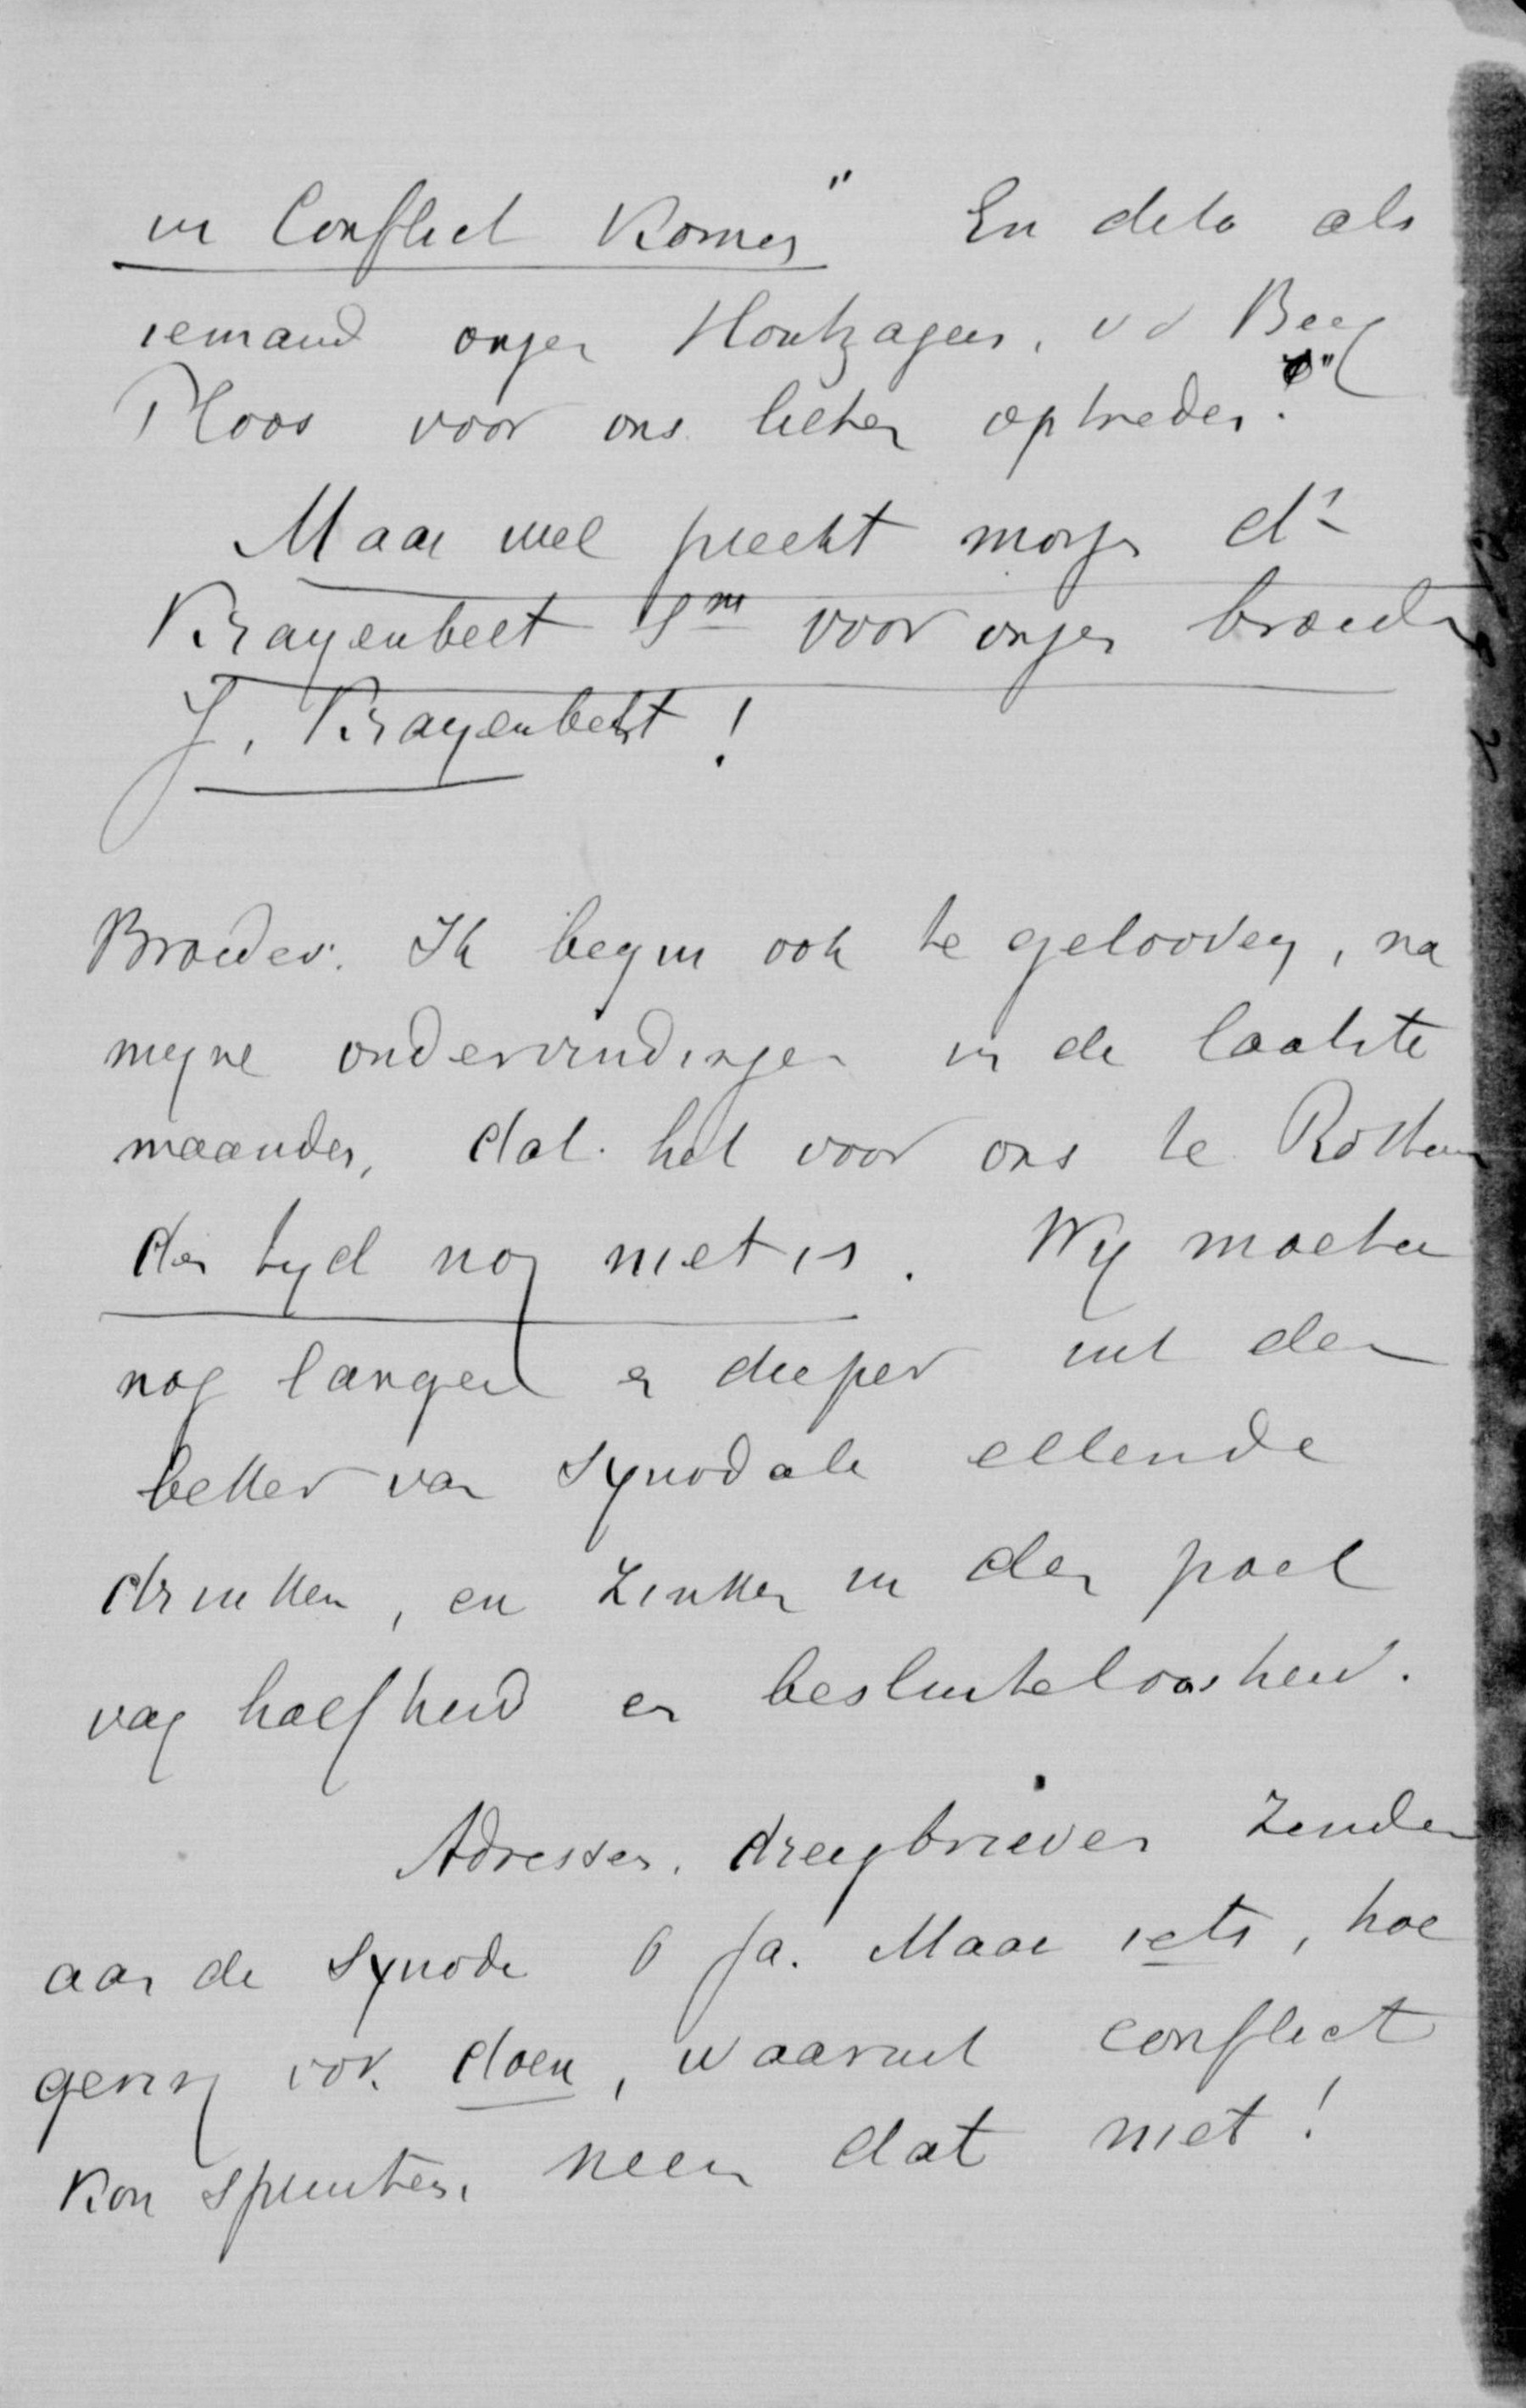 in Conflict komen" En dito als
iemand onzer Houtzagers, v d Berg
Ploos voor ons lieten optreden."
Maar wel preekt morgen ds
Krayenbelt Sr voor onzen broeder
J. Krayenbelt!
Broeder. Ik begin ook te gelooven, na
mijne ondervindingen in de laatste
maanden, dat het voor ons te Rotterdam
den tijd nog niet is. Wij moeten
nog langer en dieper uit den
beker van Synodale ellende
drinken, en zinken in den poel
van halfheid en besluiteloosheid.
Adressen, dreigbrieven zenden
aan de Synode o ja. Maar iets, hoe
gering ook doen, waaruit conflict
kon spruiten, neen dat niet!